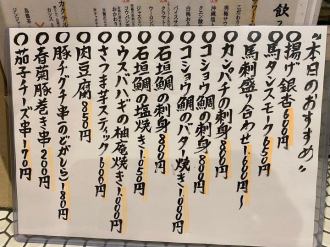 "本日のおすすめ"
○揚げ銀杏 600円
○馬タンスモーク 650円
○馬刺盛り合わせ 1,600円〜
○カンパチの刺身 800円
○コショウ鯛の刺身 800円
○コショウ鯛のバター焼き 1,000円
○石垣鯛の刺身 800円
○石垣鯛の塩焼き 1,150円
○ウスバハギの柚庵焼き 1,000円
○さつま芋スティック 600円
○肉豆腐 850円
○豚チップナ串(のどがしら) 180円
○春菊豚巻き串 200円
○茄子チーズ串 170円